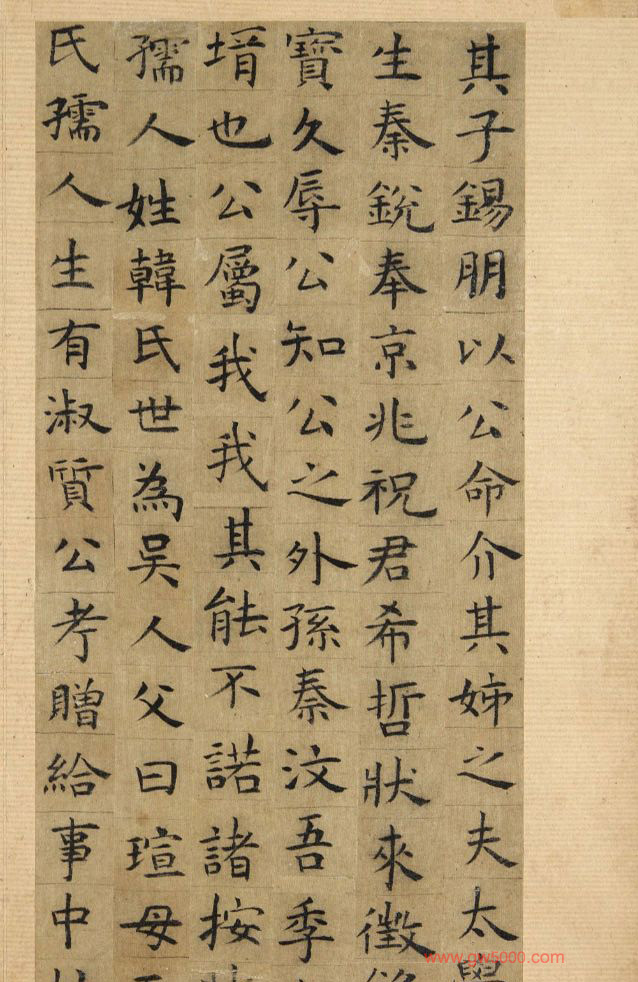 其子錫朋以公命介其姊之夫太學
生秦銳奉京兆祝君希哲狀來徵
寶久辱公知公之外孫秦汶吾季
壻也公屬我我其能不諾諸按
孺人姓韓氏世為吳人父曰瑄母
氏孺人生有淑質公考贈給事中
www.gw5000.com